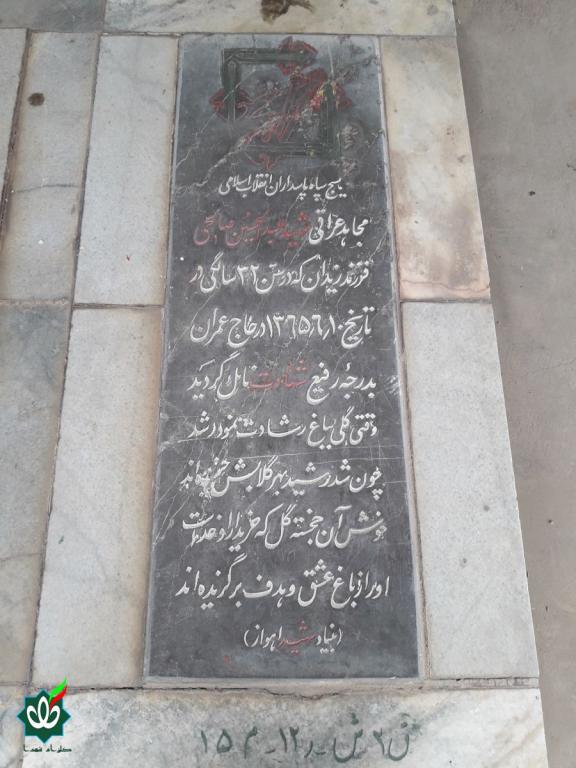 بسیج سپاه پاسداران انقلاب اسلامی
مجاهد عراقی شهید عبدالحسین صالحی
فرزند زیدان که در سن ۳۲ سالگی در
تاریخ ۱۳۶۵٫۶٫۱۰ در حاج عمران
بدرجه رفیع شهادت نائل گردید
وقتی گلی بباغ رشادت نمود رشد
چون شد رشید بهر گلابش
خوش آن خجسته گل که خریدار
او را از باغ عشق و هدف برگزیده اند
(بنیاد شهید اهواز)
ق ۲ ش - ر ۱۲ - م ۱۵